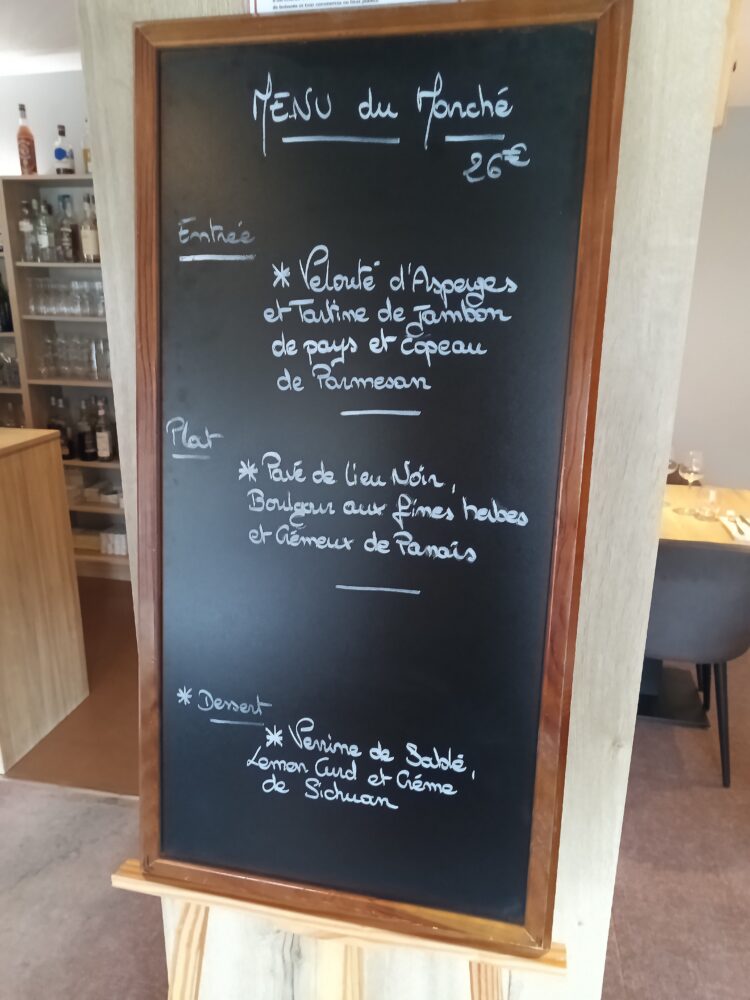 MENU du Marché
26€
Entrée
* Velouté d'Asperges
et Tartine de Jambon
de pays et Copeau
de Parmesan
Plat
* Pavé de Lieu Noir,
Boulgour aux fines herbes
et Crémeux de Panais
* Dessert
* Verrine de Sablé,
Lemon Curd et Crème
de Sichuan